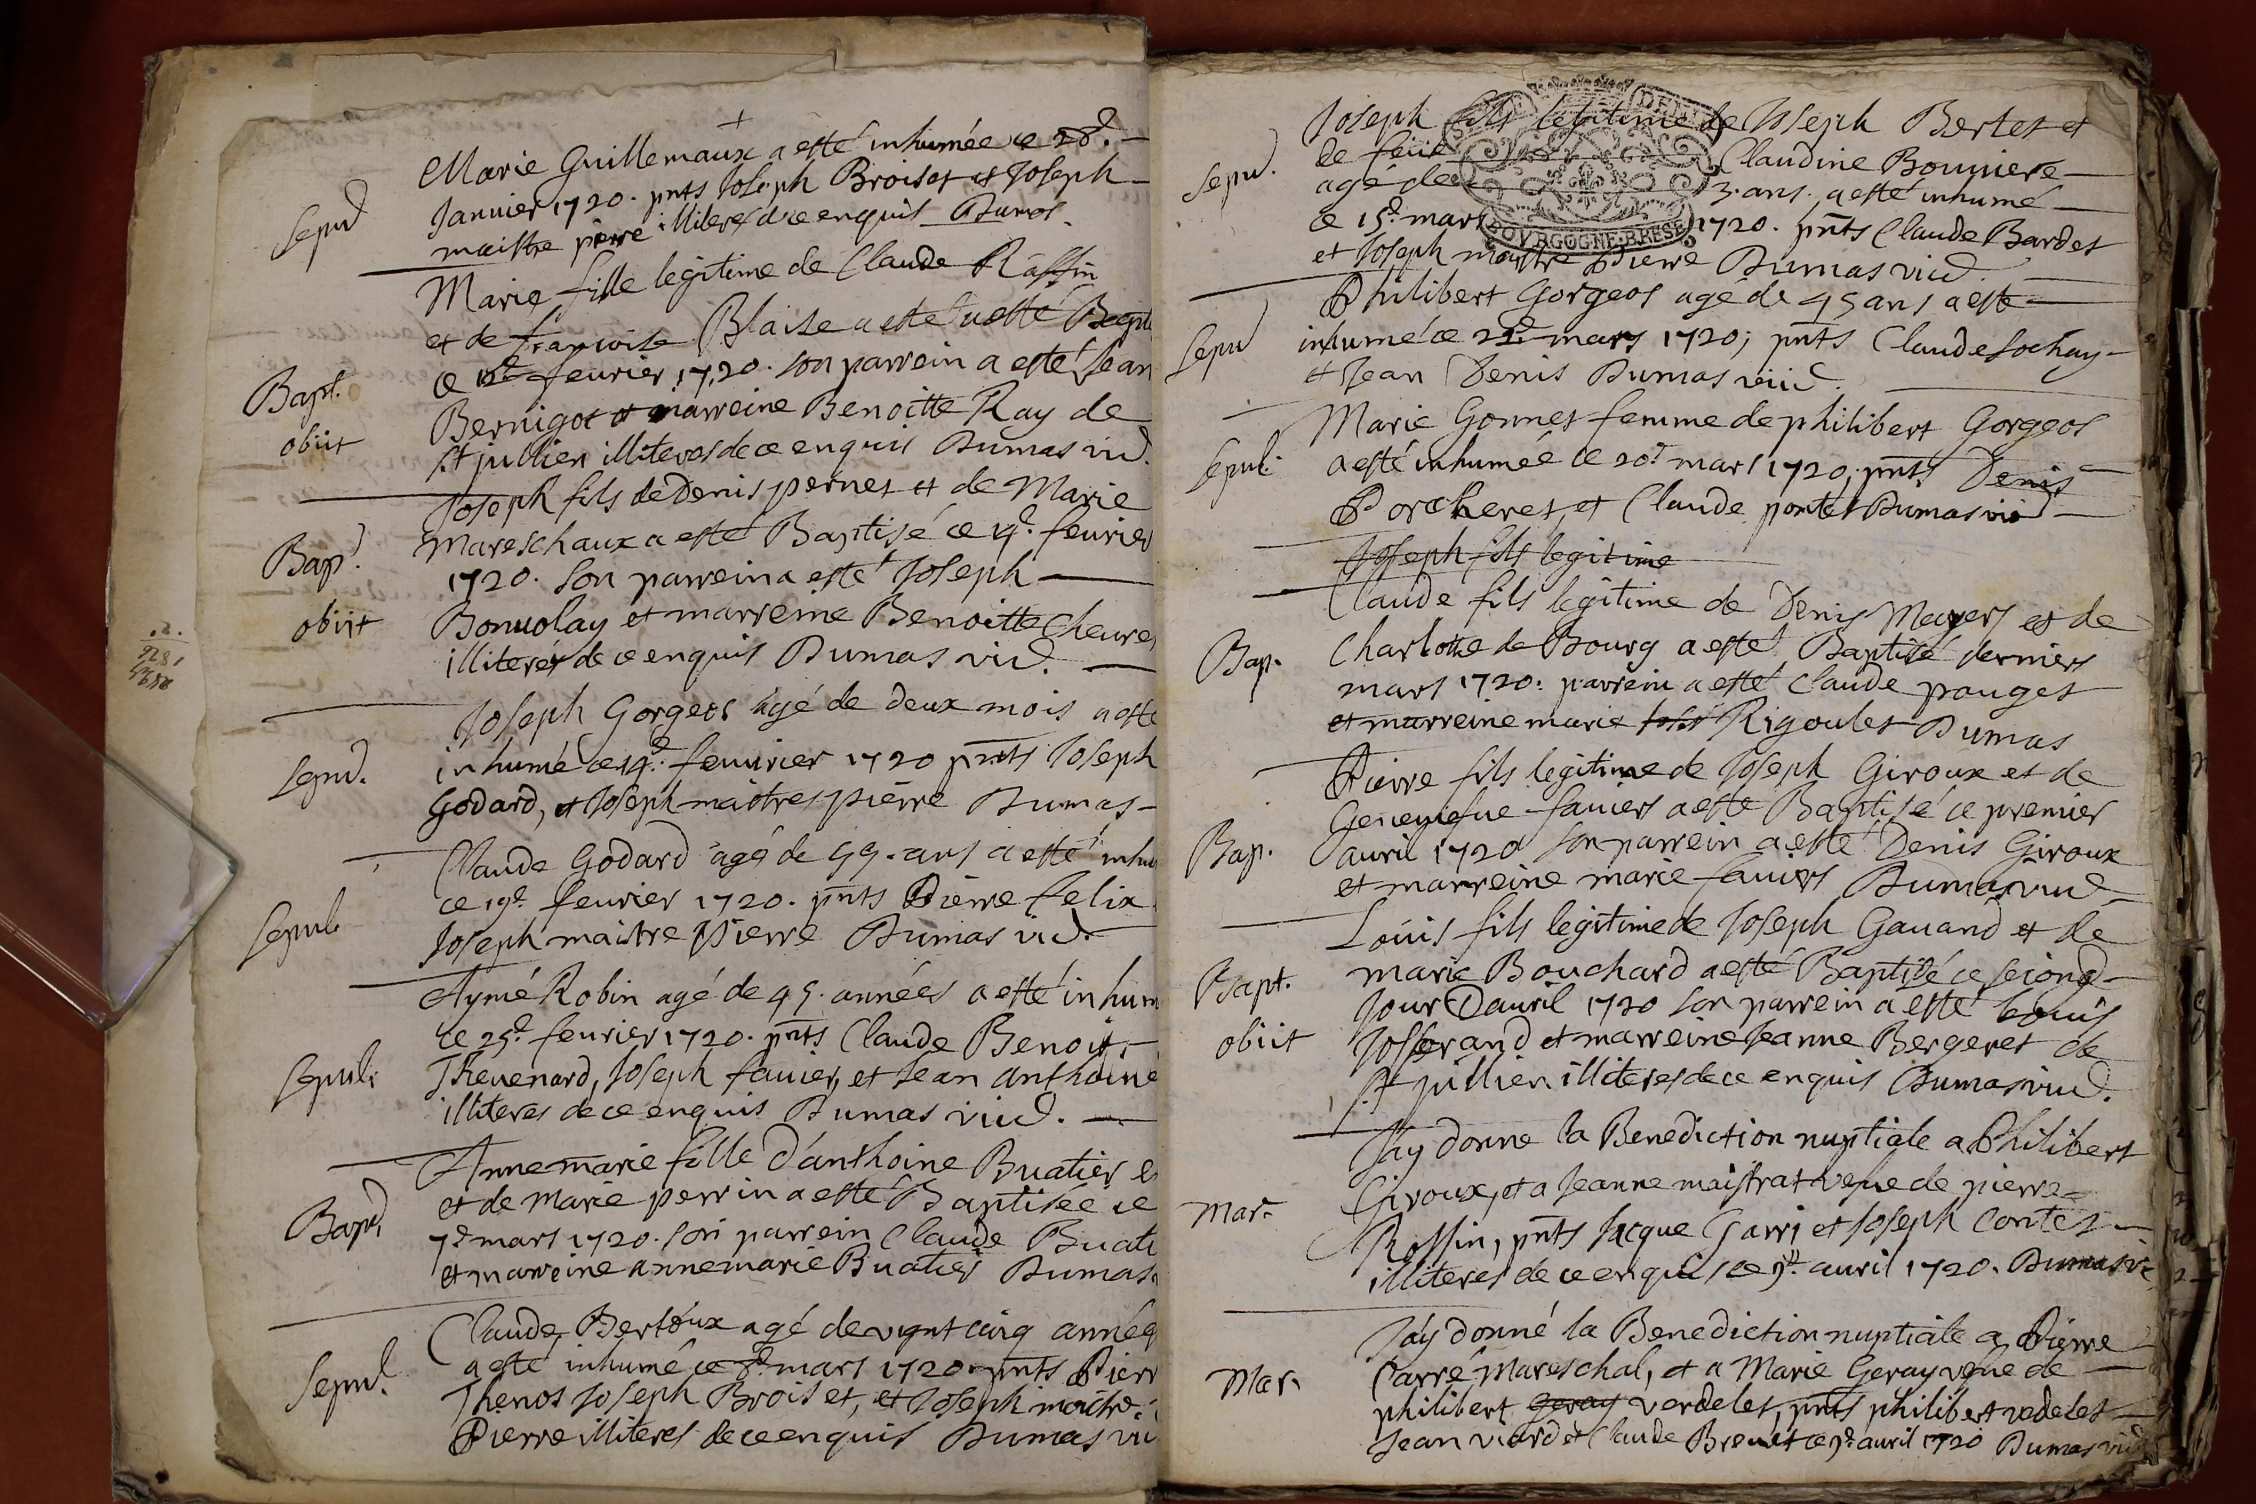 Marie Guillemaux a esté inhumée ce 28e.
Sepul
Januier 1720. pnts Joseph Broiset et Joseph
maistre pierre illiteres de ce enquis Dumas
Marie fille legitime de Claude Raffin
et de francoise Blaise a esté a esté Bapt
ce feurier 1720. son parrein a esté Jean
Bapt.
obiit
Bernigot et marreine Benoitte Ray de
St jullien illiteres de ce enquis Dumas vic.
Joseph fils de Denis pernet et de Marie
Mareschaux a esté Baptisé ce 4e. feurier
Bap.
1720. son parrein a esté Joseph
obiit
Bonuolay et marreine Benoitte Cheure
illiteres de ce enquis Dumas vic.
Joseph Gorgeos agé de deux mois a esté
Sepul.
inhumé ce 14e. feurier 1720 pnts Joseph
Godard, et Joseph maistres pierre Dumas
Claude Godard agé de 55. ans a esté inhu
ce 19e. feurier 1720. pnts Pierre felix
Sepul.
Joseph maistre Pierre Dumas vic.
Aymé Robin agé de 45. années a esté inhum
ce 25e. feurier 1720. pnts Claude Benoit,
Sepul.
Theuenard, Joseph fauier, et Jean anthoine
illiteres de ce enquis Dumas vic.
Anne marie fille d'anthoine Buatier
et de Marie perrin a esté Baptisée ce
Bap.
7e mars 1720. son parrein Claude Buati
et marreine anne marie Buatier Dumas
Claude Bertoux agé de vignt cinq année
a esté inhumé ce 8e mars 1720. pnts Pierr
Sepul.
Thenos Joseph Broiset, et Joseph maistre
Pierre illiteres de ce enquis Dumas vic
Joseph fils legitime de Joseph Bertet et
de feue Claudine Bouuiere
Sepul.
agé de 3. ans. a esté inhumé
ce 15e. mars 1720. pnts Claude Bardet
BOVRGOGNE. BRESE
et Joseph maistre Pierre Dumas vic.
Philibert Gorgeos agé de 45 ans a esté
Sepul
inhumé ce mars 1720; pnts Claude Lochay
et Jean Denis Dumas vic.
Marie Gonnet femme de philibert Gorgeos
Sepul.
a esté inhumée ce 20e mars 1720, pnts Denis
Porcheret, et Claude pontet Dumas vic
Joseph fils legitime
Claude fils legitime de Denis Mayers et de
Bap.
Charlotte de Bourg a esté Baptisé derniers
mars 1720. parrein a esté Claude pouget
et marreine marie Rigoulet Dumas
Pierre fils legitime de Joseph Giroux et de
Geneuiefue fauiers a esté Baptisé ce premier
Bap.
auril 1720 son parrein a esté Denis Giroux
et marreine marie fauiers Dumas vic
Loüis fils legitime de Joseph Gauand et de
marie Bouchard a esté Baptisé ce second
Bapt.
Jour D'auril 1720 son parrein a esté Loüis
obiit
Josserand et marreine Jeanne Bergeret de
St jullien illiteres de ce enquis Dumas vic.
J'ay donné la Benediction nuptiale a Philibert
Giroux, et a Jeanne maistrat vefue de pierre
Mar.
Roffin, pnts Jacque Garri et Joseph Contet
illiteres de ce enquis ce 9e. auril 1720. Dumas vic
J'ay donné la Benediction nuptiale a Pierre
Carré Mareschal, et a Marie Geray vefue de
Mar.
philibert Geray verdelet, pnts philibert vedelet
Jean viard et Claude Brenet ce 9e. auril 1720 Dumas vic